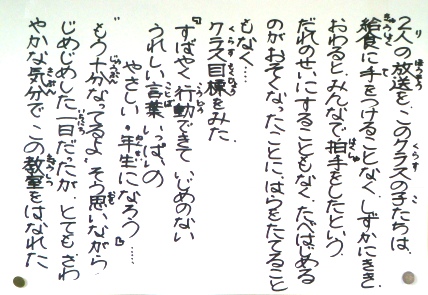 2人の放送を、このクラスの子たちは、
給食に手をつけることなく、しずかにきき、
おわると、みんなで拍手をしたという。
だれのせいにすることもなく、たべはじめる
のがおそくなったことに、はらをたてること
もなく……
クラス目標をみた。
『すばやく行動できて いじめのない
うれしい言葉 いっぱいの
やさしい 年生になろう』……
"もう十分なってるよ"そう思いながら、
じめじめした一日だったが、とても、さわ
やかな気分で、この教室をはなれた